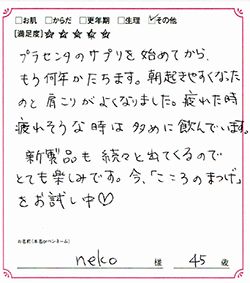 □お肌 □からだ □更年期 □生理 ☑その他
[満足度]☆☆☆☆☆
プラセンタのサプリを始めてから、
もう何年かたちます。朝起きやすくなた
のと肩こりがよくなりました。疲れた時
疲れそうな時は多めに飲んでいます。
新製品も続々と出てくるので
とても楽しみです。今、「こころのまつげ」
をお試し中♡
お名前(本名orペンネーム)
neko 様 45 歳